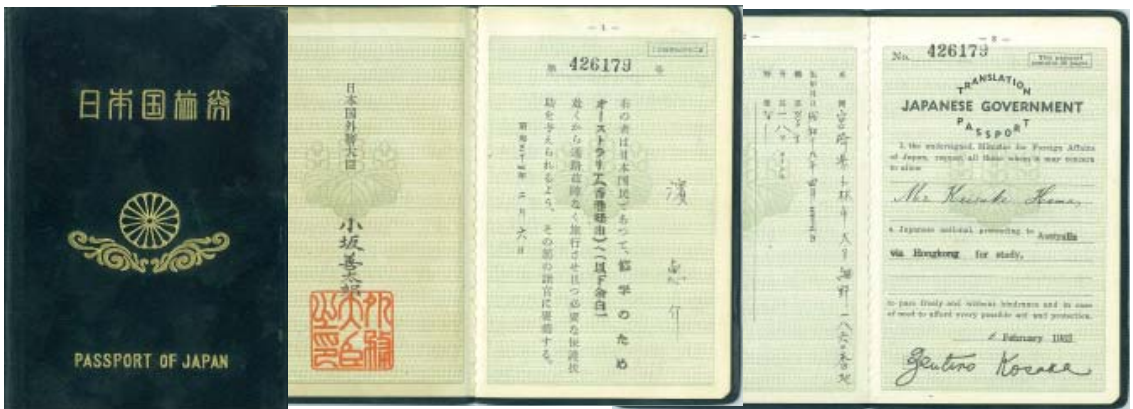 日本国旅券
PASSPORT OF JAPAN
日本国外務大臣
小坂善太郎
外務大臣之印
- 1 -
第 426179 号
濱
介
右の者は日本国民であつて、修学のため
オーストラリア(香港経由)へ(以下余白)
赴くから通路故障なく旅行させ且つ必要な保護扶
助を与えられるよう、その筋の諸官に要請する。
年二月六日
宮崎県小林市大字細野一八六
No. 426179
This passport
contains 28 pages
TRANSLATION
JAPANESE GOVERNMENT
PASSPORT
I, the undersigned, Minister for Foreign Affairs
of Japan, request all those whom it may concern
to allow
Mr Keisuke Hama,
a Japanese national proceeding to Australia
via Hongkong for study,
to pass freely and without hindrance and in case
of need to afford every possible aid and protection.
6 February 1962
Zentaro Kosaka